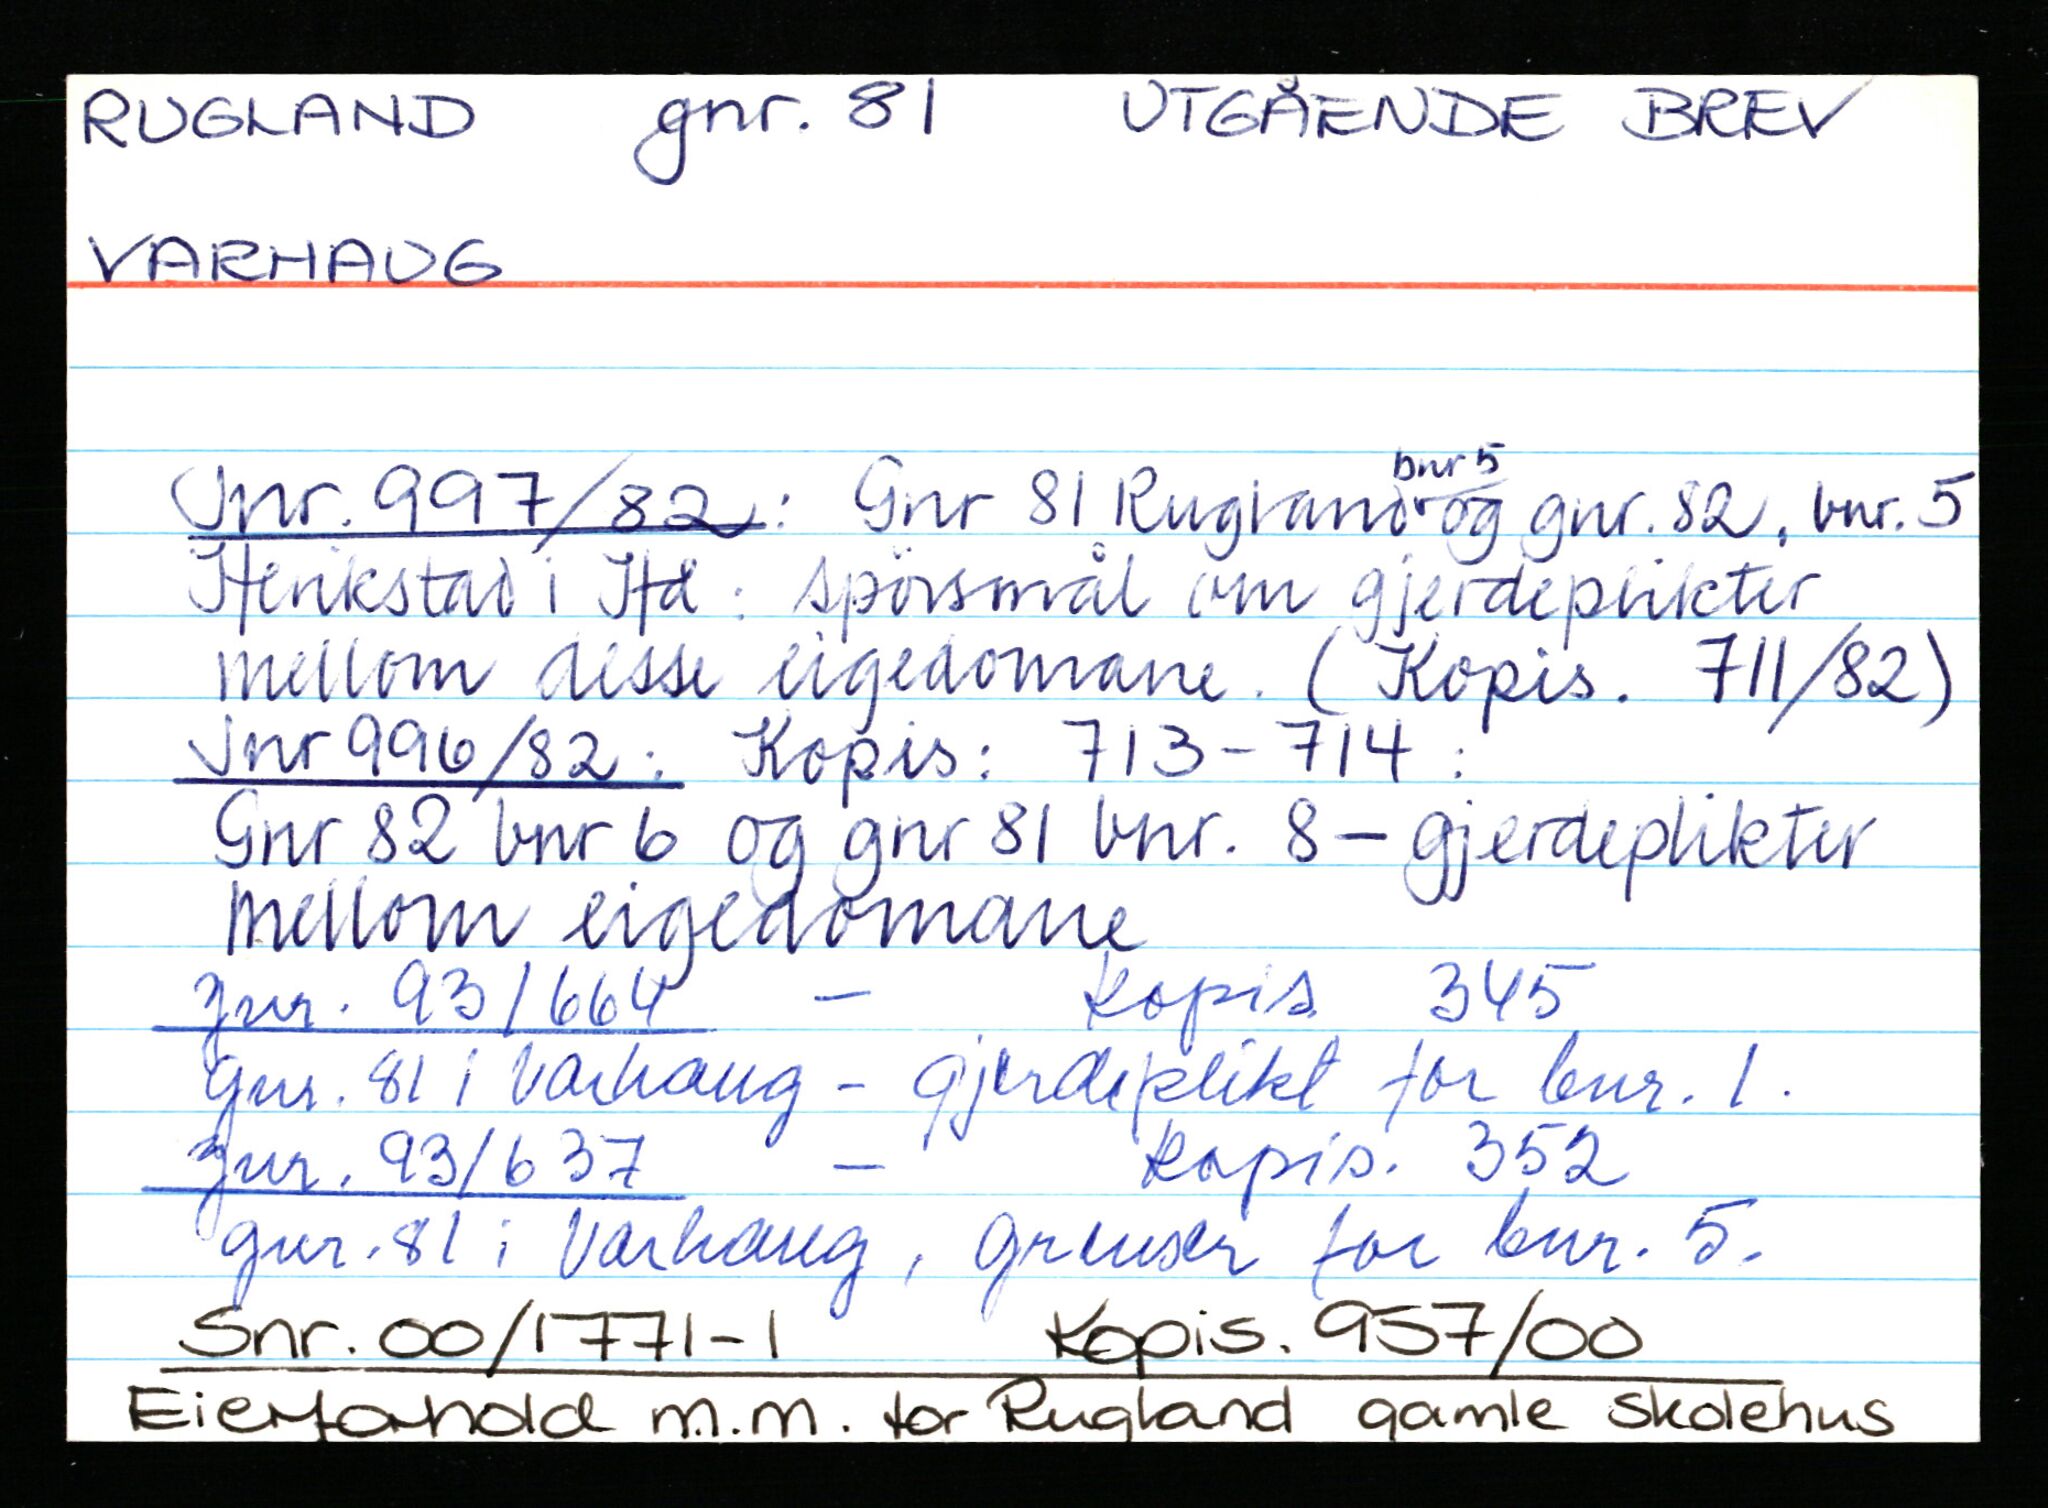 RUGLAND gnr. 81 UTGÅENDE BREV
VARHAUG
Jnr. 997/82: Gnr 81 Rugland bnr 5 og gnr. 82, bnr. 5
Henikstad i Hå: spörsmål om gjerdeplikter
mellom desse eigedomane. (Kopis. 711/82)
Jnr 996/82: Kopis: 713-714:
Gnr 82 bnr 6 og gnr 81 bnr. 8 - gjerdeplikter
mellom eigedomane
Jnr. 93/664 - kopis. 345
gnr. 81 i Varhaug - gjerdeplikt for bnr. 1.
Jnr. 93/637 - kopis. 352
gnr. 81 i Varhaug, grenser for bnr. 5.
Snr. 00/1771-1 Kopis. 957/00
Eierforhold m.m. for Rugland gamle skolehus